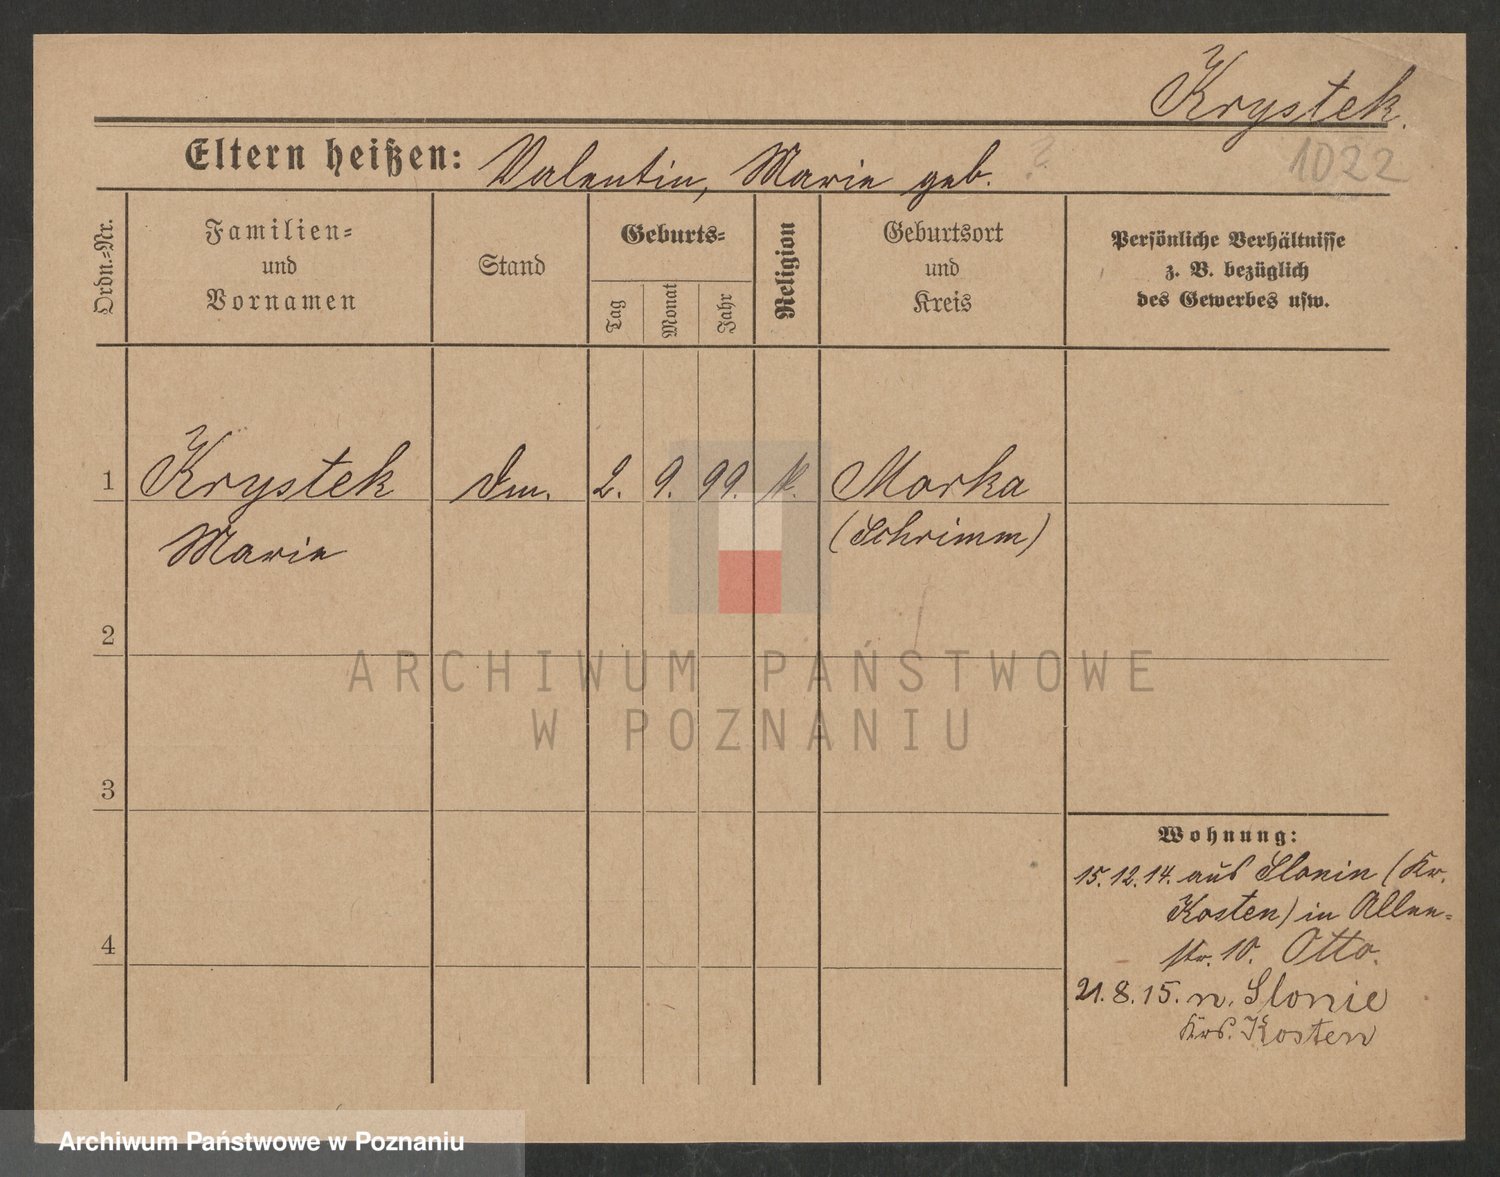 Krystek.
1022
Eltern heißen: Valentin, Marie geb. ?
Ordn.=Nr.
Familien=
und
Vornamen
Stand
Geburts=
Tag
Monat
Jahr
Religion
Geburtsort
und
Kreis
Persönliche Verhältnisse
z. B. bezüglich
des Gewerbes usw.
1 Krystek 2. 9. 99. k. Morka
Marie (Schrimm)
2
3
4
Wohnung:
15.12.14. aus Slonin (Kr.
Kosten) in Allee=
str. 10. Otto.
21.8.15. n. Slonie
Krs. Kosten
ARCHIWUM PAŃSTWOWE
W POZNANIU
Archiwum Państwowe w Poznaniu